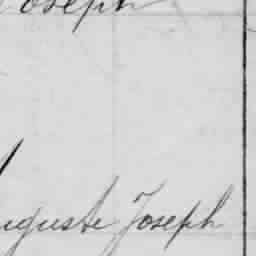 Joseph
Auguste Joseph